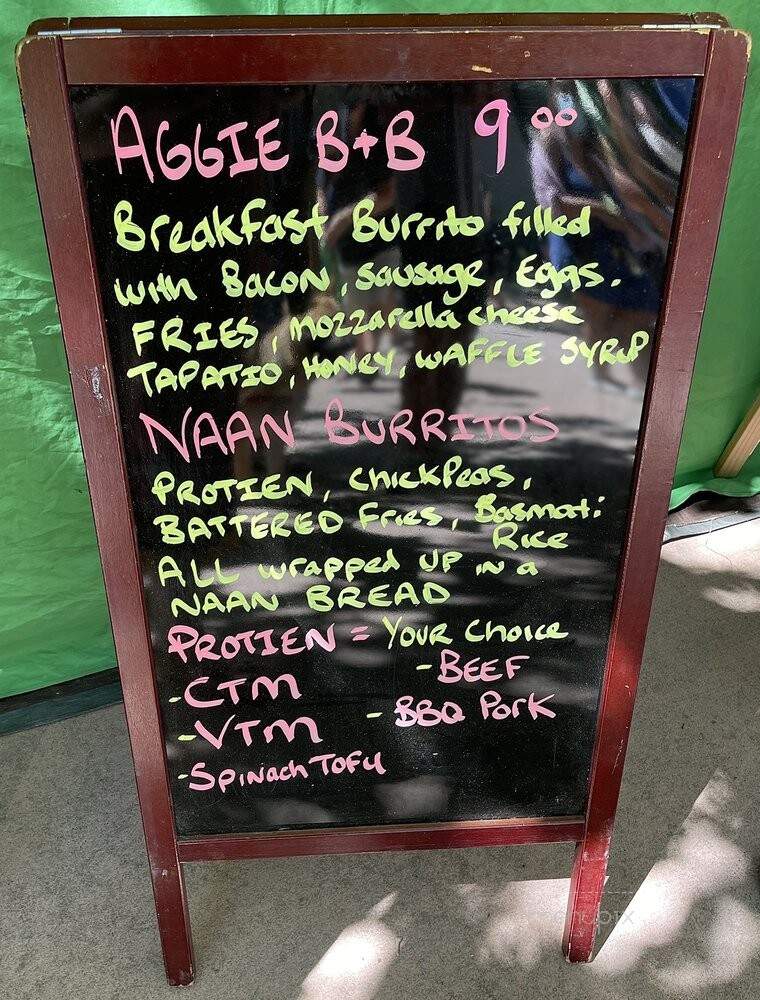 AGGIE B+B 9 00
Breakfast Burrito filled
with Bacon, sausage, Eggs.
FRIES, mozzarella cheese
TAPATIO, HONEY, WAFFLE SYRUP
NAAN BURRITOS
PROTIEN, chickPeas,
BATTERED Fries, Basmati
Rice
ALL wrapped UP in a
NAAN BREAD
PROTIEN = YOUR Choice
-CTM -BEEF
-VTM - BBQ Pork
-Spinach TOFU